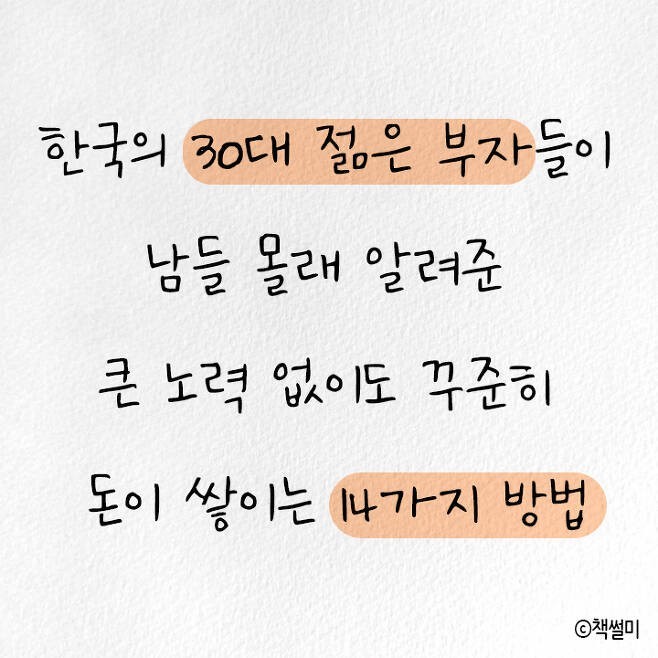 한국의 30대 젊은 부자들이
남들 몰래 알려준
큰 노력 없이도 꾸준히
돈이 쌓이는 14가지 방법
©책썰미